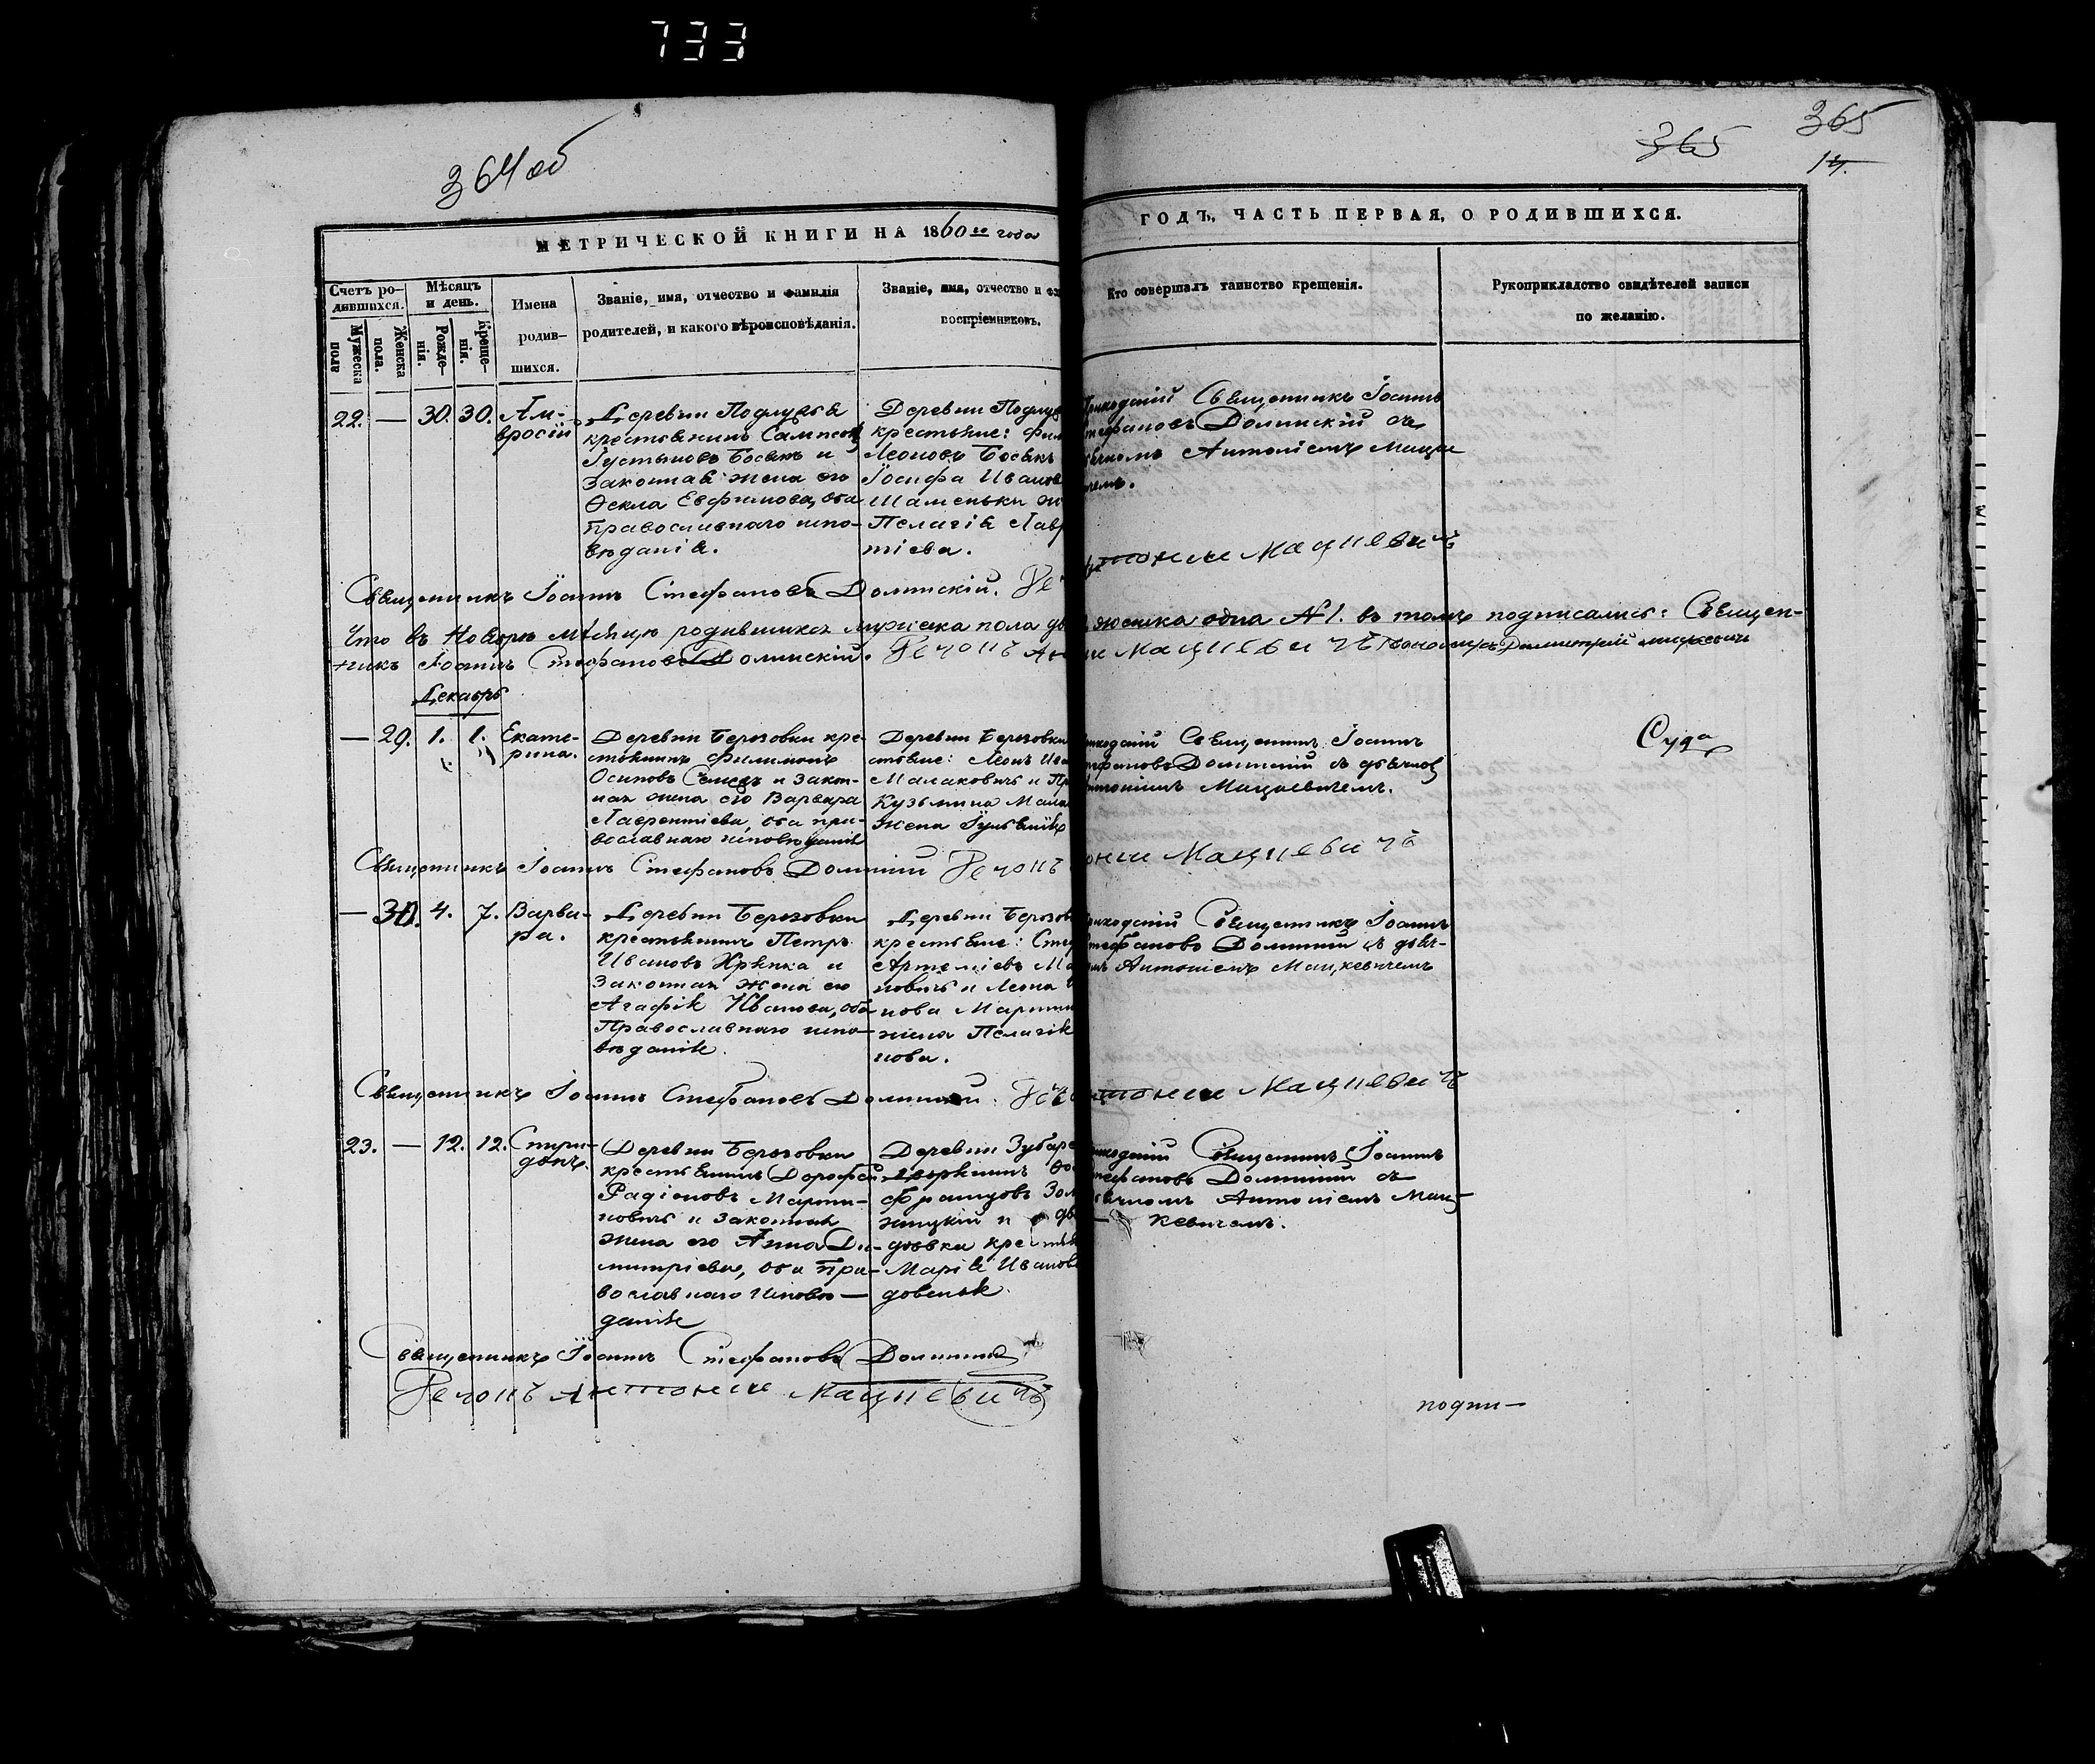 733
364 об
365
365
14.
МЕТРИЧЕСКОЙ КНИГИ НА 1860 го года
ГОДЪ, ЧАСТЬ ПЕРВАЯ, О РОДИВШИХСЯ.
Счетъ ро-
дившихся.
Мужеска
пола
Женска
пола.
Мѣсяцъ
и день.
Рожде-
нія.
Креще-
нія.
Имена
родив-
шихся.
Званіе, имя, отчество и фамилія
родителей, и какого вѣроисповѣданія.
Званіе, имя, отчество и фа
воспріемниковъ.
Кто совершалъ таинство крещенія.
Рукоприкладство свидѣтелей записи
по желанію.
22. — 30. 30.
Ам-
вросій
Деревни Подлужья
крестьянинъ
Іустиновъ Босякъ и
законная жена его
Ѳекла Евфимова, оба
православнаго испо-
вѣданія.
Деревни Подлуж
крестьяне: Фил
Леоновъ Босякъ
Іосифа Иванов
Шаменьки ж
Пелагія Лавр
тіева.
Приходскій Священникъ Іоаннъ
Стефановъ Долинскій съ
Антоніемъ Мацке
чемъ.
Священникъ Іоаннъ Стефановъ Долинскій.
Мацкевичъ
Что въ Ноябрѣ мѣсяцѣ родившихся мужеска пола женска одна №1. въ томъ подписались: Священ-
никъ Іоаннъ Стефановъ Долинскій. Мацкевичъ Пономарь Димитрій
Декабрь
— 29. 1. 1.
Екате-
рина.
Деревни Березовки кре-
стьянинъ Филимонъ
Осиповъ и закон-
ная жена его Варвара
Лаврентіева, оба пра-
вославнаго исповѣданія
Деревни Березовки
стьяне: Леонъ Ива
Малаховичъ и Пр
Кузьмина Мала
жена
Священникъ Іоаннъ
Стефановъ Долинскій съ дьячкомъ
Антоніемъ Мацкевичемъ.
Суда
Священникъ Іоаннъ Стефановъ Долинскій
Мацкевичъ
— 30. 4. 7.
Варва-
ра.
Деревни Березовки
крестьянинъ Петръ
Ивановъ Хрѣпка и
законная жена его
Агафія Иванова, оба
Православнаго испо-
вѣданія.
Деревни Березов
крестьяне: Сте
Артеміевъ Ма
новичъ и Леона
нова Мартин
жена Пелагія
нова.
Священникъ Іоаннъ
Стефановъ Долинскій съ дьяч-
Антоніемъ Мацкевичемъ
Священникъ Іоаннъ Стефановъ Долинскій.
Мацкевичъ
23. — 12. 12.
Спири-
донъ.
Деревни Березовки
крестьянинъ Дорофей
Радіоновъ Марти-
новичъ и законная
жена его Анна Ди-
митріева, оба Пра-
вославнаго исповѣ-
данія
Деревни Зубаре
дворянинъ
Францовъ
жицкій и
довки кресть
Марія Иванов
довская
Священникъ Іоаннъ
Стефановъ Долинскій съ
дьячкомъ Антоніемъ Мац-
кевичемъ.
Священникъ Іоаннъ Стефановъ Долинскій
Антоній Мацкевичъ
подпи-